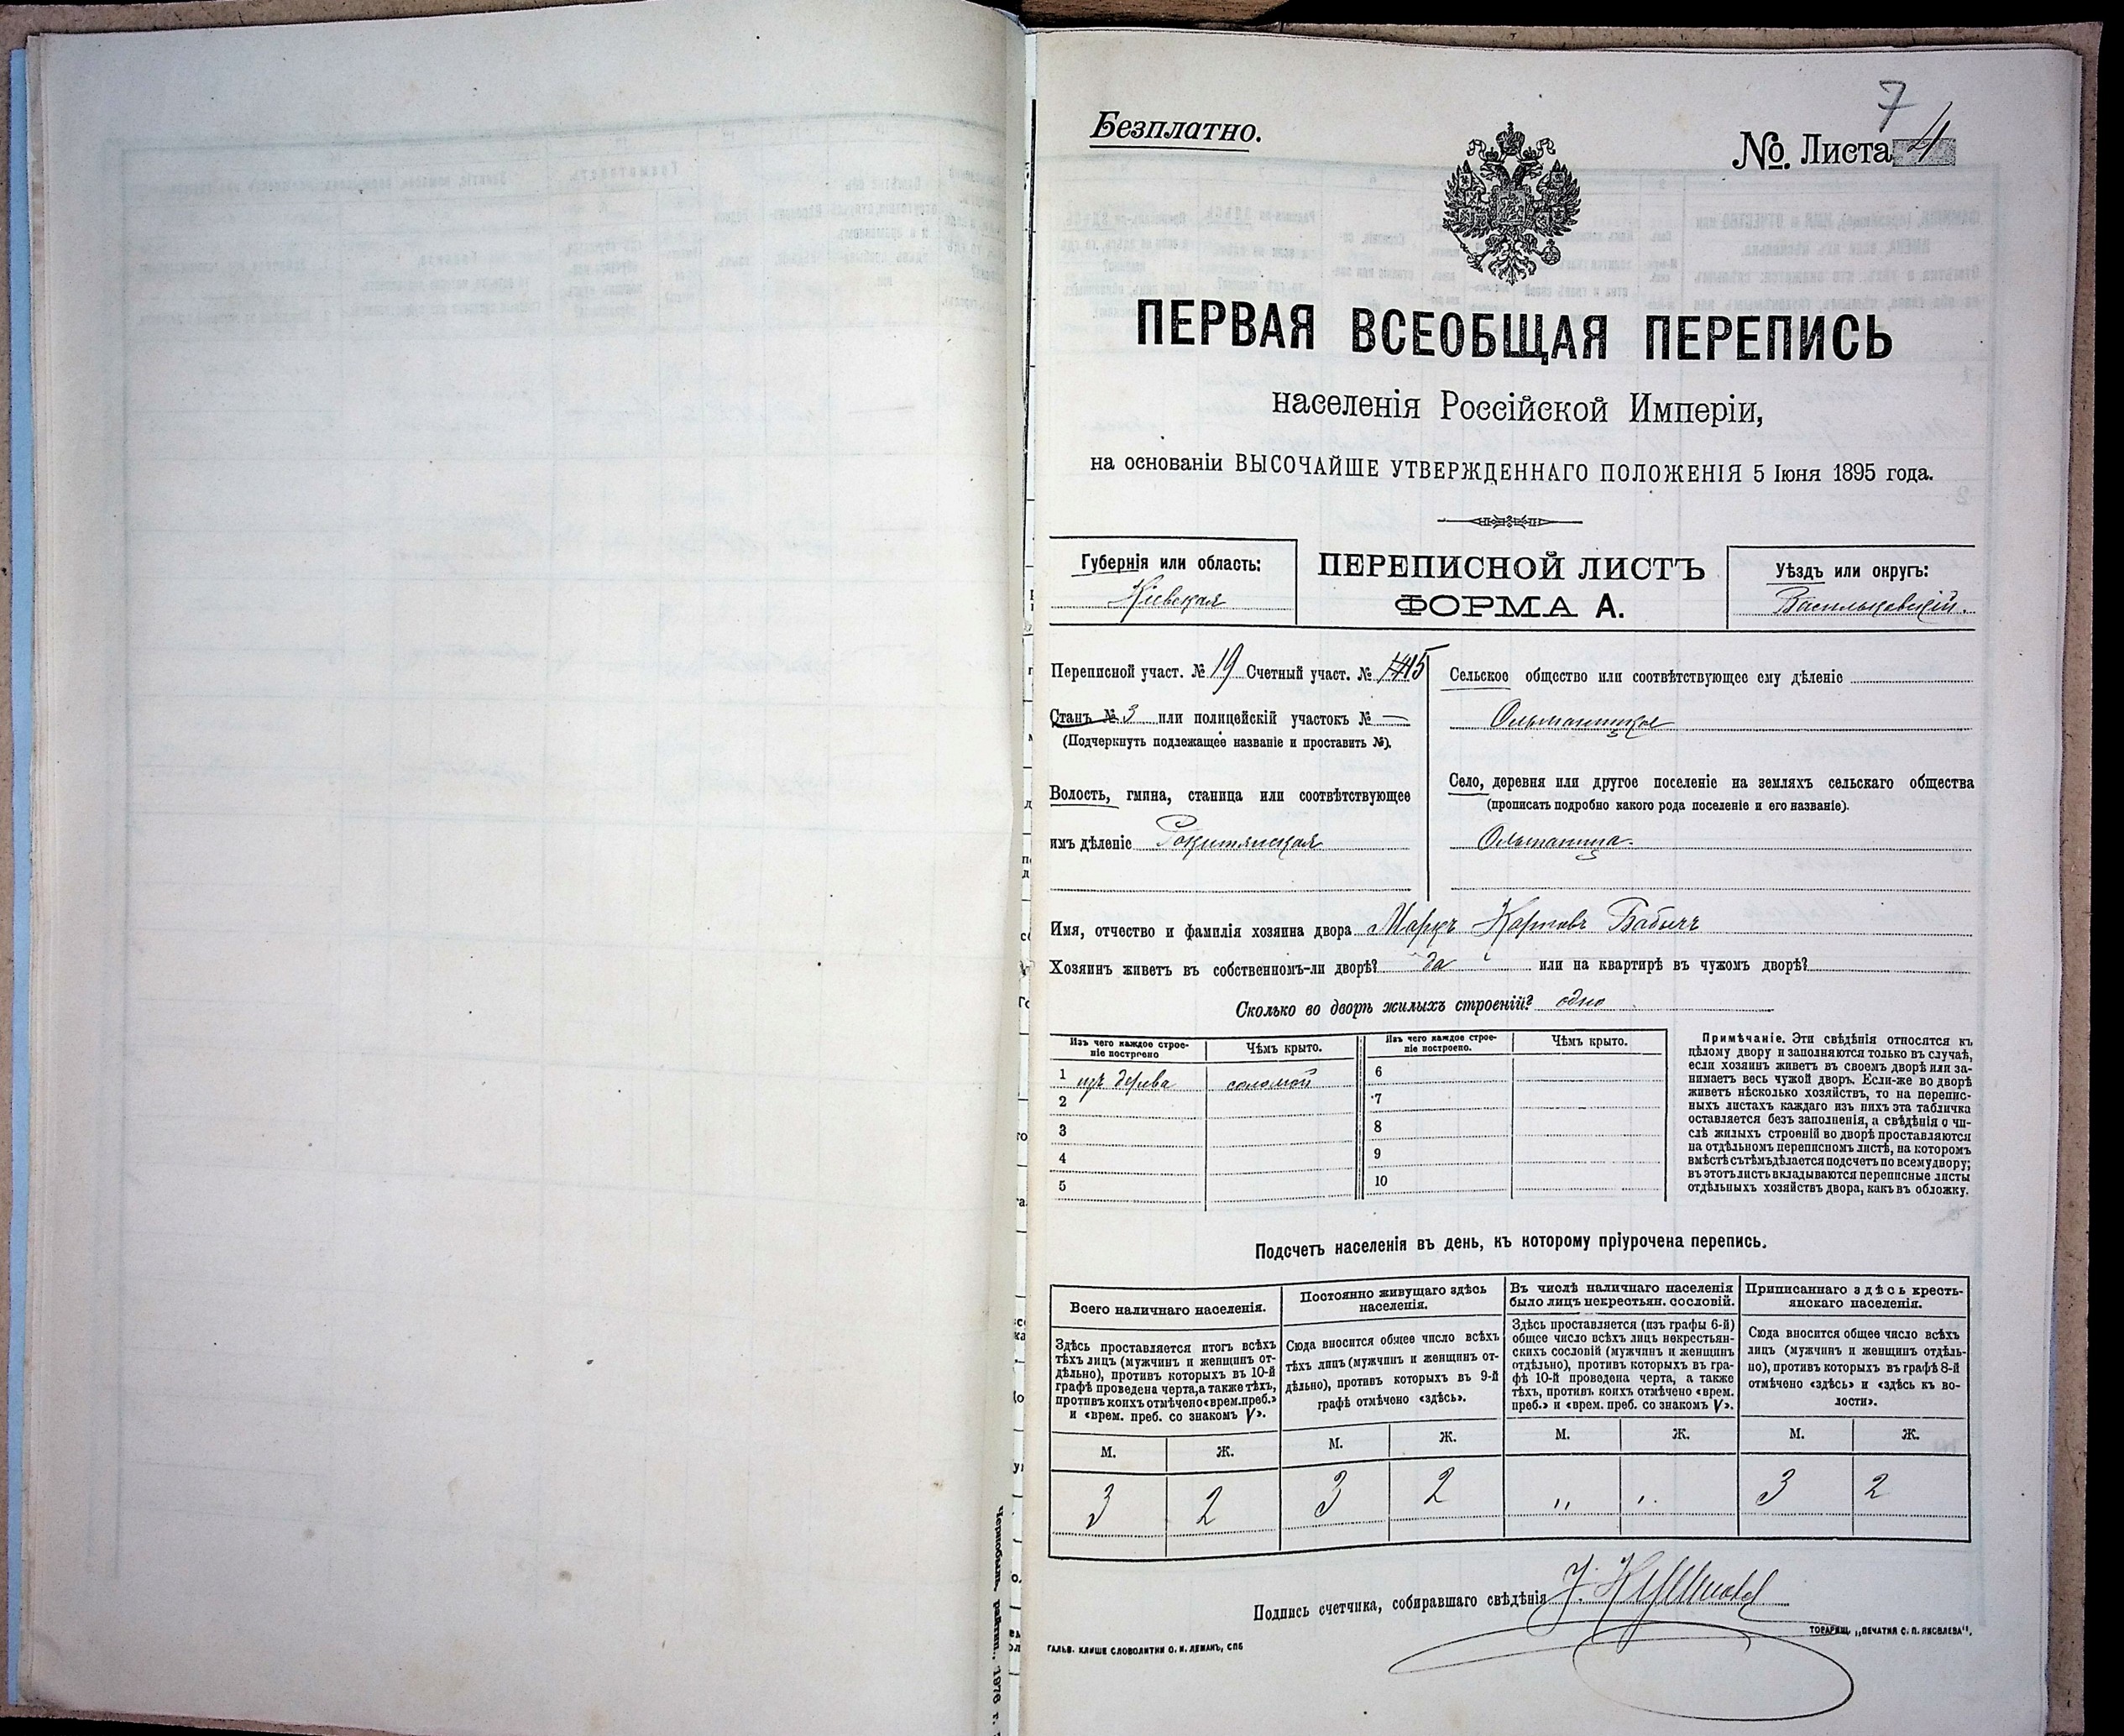 7
Безплатно.
№ Листа 4
ПЕРВАЯ ВСЕОБЩАЯ ПЕРЕПИСЬ
населенія Россійской Имперіи,
на основаніи ВЫСОЧАЙШЕ УТВЕРЖДЕННАГО ПОЛОЖЕНІЯ 5 Іюня 1895 года.
Губернія или область:
Кіевская
ПЕРЕПИСНОЙ ЛИСТЪ
ФОРМА А.
Уѣздъ или округъ:
Васильковскій.
Переписной участ. № 19 Счетный участ. №
Станъ № 3 или полицейскій участокъ № —
(Подчеркнуть подлежащее названіе и проставить №).
Волость, гмина, станица или соотвѣтствующее
имъ дѣленіе Рокитянская
Сельское общество или соотвѣтствующее ему дѣленіе
Ольшаницкое
Село, деревня или другое поселеніе на земляхъ сельскаго общества
(прописать подробно какого рода поселеніе и его названіе).
Ольшаница.
Имя, отчество и фамилія хозяина двора Маркъ Карповъ Бабичъ
Хозяинъ живетъ въ собственномъ-ли дворѣ? да или на квартирѣ въ чужомъ дворѣ?
Сколько во дворѣ жилыхъ строеній? одно
Изъ чего каждое строе-
ніе построено
Чѣмъ крыто.
Изъ чего каждое строе-
ніе построено.
Чѣмъ крыто.
1 изъ дерева соломой
2
3
4
5
6
7
8
9
10
Примѣчаніе. Эти свѣдѣнія относятся къ
цѣлому двору и заполняются только въ случаѣ,
если хозяинъ живетъ въ своемъ дворѣ или за-
нимаетъ весь чужой дворъ. Если-же во дворѣ
живетъ нѣсколько хозяйствъ, то на перепис-
ныхъ листахъ каждаго изъ нихъ эта табличка
оставляется безъ заполненія, а свѣдѣнія о чи-
слѣ жилыхъ строеній во дворѣ проставляются
на отдѣльномъ переписномъ листѣ, на которомъ
вмѣстѣ съ тѣмъ дѣлается подсчетъ по всему двору;
въ этотъ листъ вкладываются переписные листы
отдѣльныхъ хозяйствъ двора, какъ въ обложку.
Подсчетъ населенія въ день, къ которому пріурочена перепись.
Всего наличнаго населенія.
Здѣсь проставляется итогъ всѣхъ
тѣхъ лицъ (мужчинъ и женщинъ от-
дѣльно), противъ которыхъ въ 10-й
графѣ проведена черта, а также тѣхъ,
противъ коихъ отмѣчено «врем. преб.»
и «врем. преб. со знакомъ V».
Постоянно живущаго здѣсь
населенія.
Сюда вносится общее число всѣхъ
тѣхъ лицъ (мужчинъ и женщинъ от-
дѣльно), противъ которыхъ въ 9-й
графѣ отмѣчено «здѣсь».
Въ числѣ наличнаго населенія
было лицъ некрестьян. сословій.
Здѣсь проставляется (изъ графы 6-й)
общее число всѣхъ лицъ некрестьян-
скихъ сословій (мужчинъ и женщинъ
отдѣльно), противъ которыхъ въ гра-
фѣ 10-й проведена черта, а также
тѣхъ, противъ коихъ отмѣчено «врем.
преб.» и «врем. преб. со знакомъ V».
Приписаннаго здѣсь кресть-
янскаго населенія.
Сюда вносится общее число всѣхъ
лицъ (мужчинъ и женщинъ отдѣль-
но), противъ которыхъ въ графѣ 8-й
отмѣчено «здѣсь» и «здѣсь къ во-
лости».
М. Ж. М. Ж. М. Ж. М. Ж.
3 2 3 2 „ „ 3 2
Подпись счетчика, собиравшаго свѣдѣнія
ГАЛЬВ. КЛИШЕ СЛОВОЛИТНИ О. И. ЛЕМАНЪ, СПБ
ТОВАРИЩ. „ПЕЧАТНЯ С. П. ЯКОВЛЕВА“.